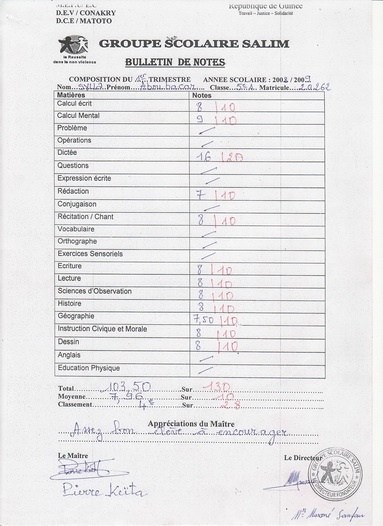 D.E.V / CONAKRY
D.C.E / MATOTO
République de Guinée
Travail – Justice – Solidarité
la Réussite
dans la non violence
GROUPE SCOLAIRE SALIM
BULLETIN DE NOTES
COMPOSITION DU 1er TRIMESTRE ANNEE SCOLAIRE : 2008 / 2009
Nom Sylla Prénom Aboubacar Classe 5èA Matricule
Matières Notes
Calcul écrit 8 | 10
Calcul Mental 9 | 10
Problème
Opérations
Dictée 16 | 20
Questions
Expression écrite
Rédaction 7 | 10
Conjugaison
Récitation / Chant 8 | 10
Vocabulaire
Orthographe
Exercices Sensoriels
Ecriture 8 | 10
Lecture 8 | 10
Sciences d'Observation 8 | 10
Histoire 8 | 10
Géographie 7,50 | 10
Instruction Civique et Morale 8 | 10
Dessin 8 | 10
Anglais
Education Physique
Total 103,50 Sur 130
Moyenne 7,96 Sur 10
Classement 4è Sur 28
Appréciations du Maître
Assez bon élève à encourager
Le Maître Le Directeur
Pierre Keïta